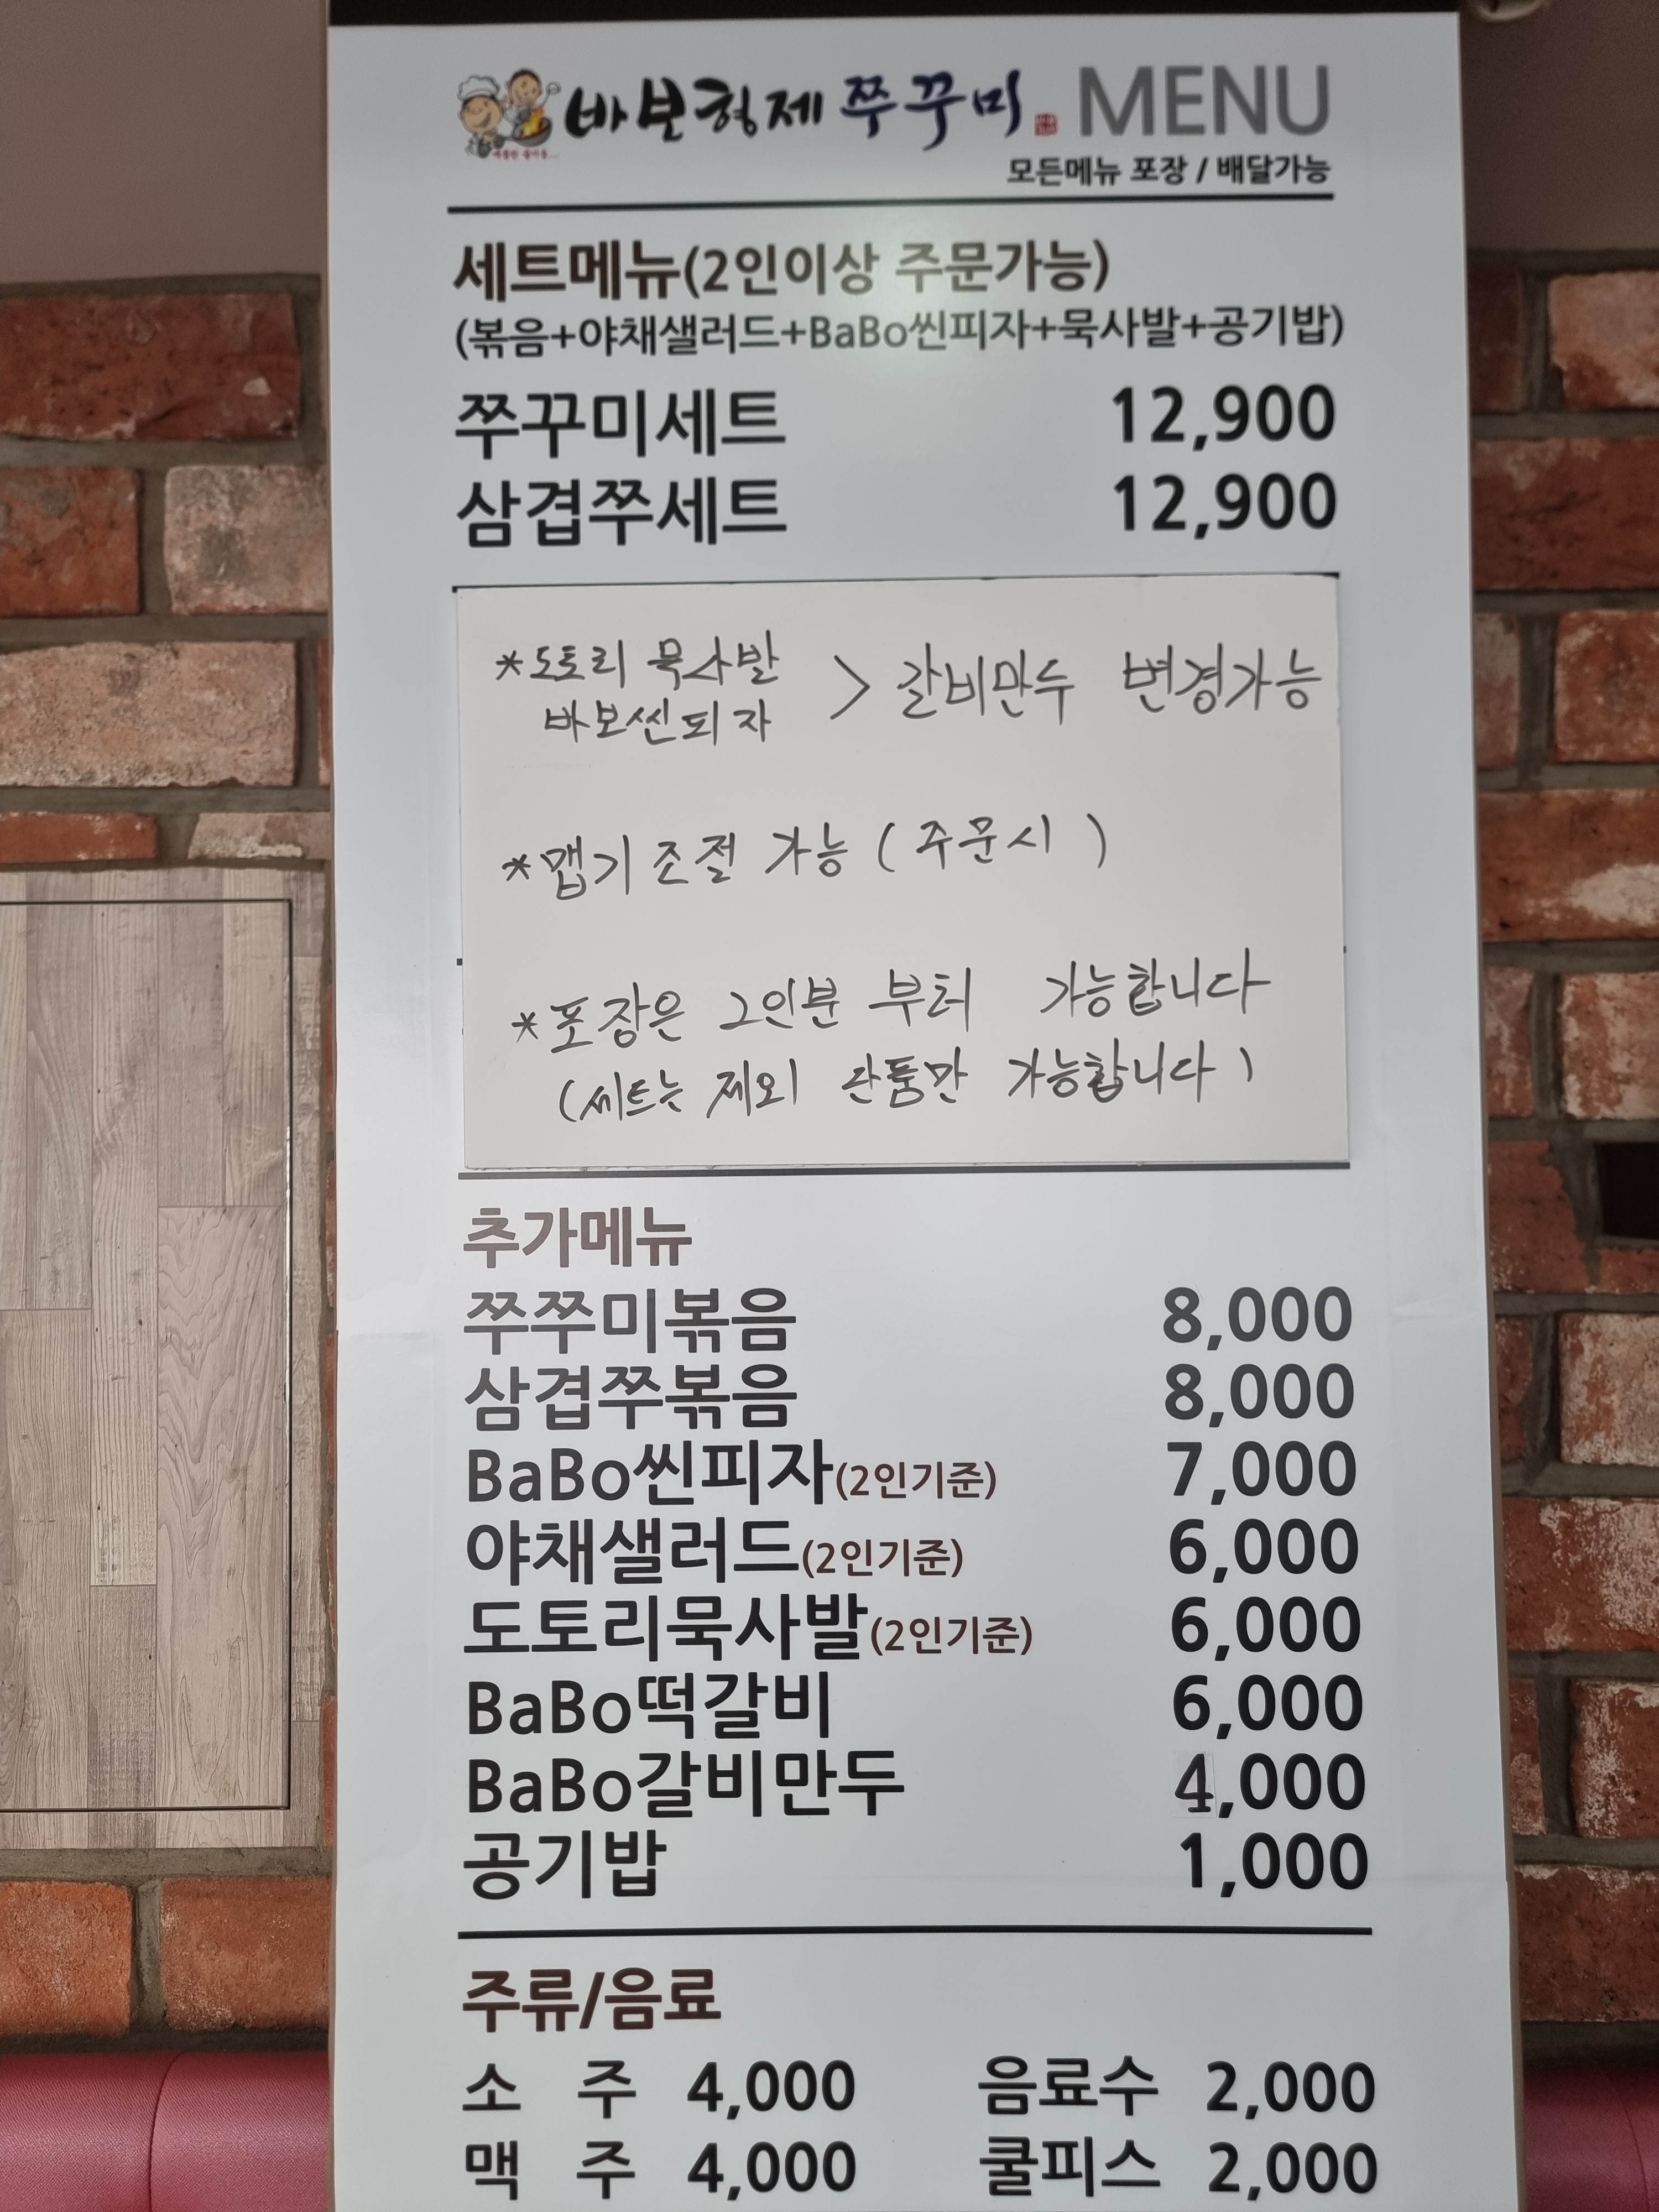 바보형제 쭈꾸미 MENU
모든메뉴 포장 / 배달가능
세트메뉴(2인이상 주문가능)
(볶음+야채샐러드+BaBo씬피자+묵사발+공기밥)
쭈꾸미세트 12,900
삼겹쭈세트 12,900
*도토리 묵사발 > 갈비만두 변경가능
바보씬피자
*맵기 조절 가능 ( 주문시 )
*포장은 2인분 부터 가능합니다
(세트는 제외 단품만 가능합니다)
추가메뉴
쭈쭈미볶음 8,000
삼겹쭈볶음 8,000
BaBo씬피자(2인기준) 7,000
야채샐러드(2인기준) 6,000
도토리묵사발(2인기준) 6,000
BaBo떡갈비 6,000
BaBo갈비만두 4,000
공기밥 1,000
주류/음료
소 주 4,000 음료수 2,000
맥 주 4,000 쿨피스 2,000